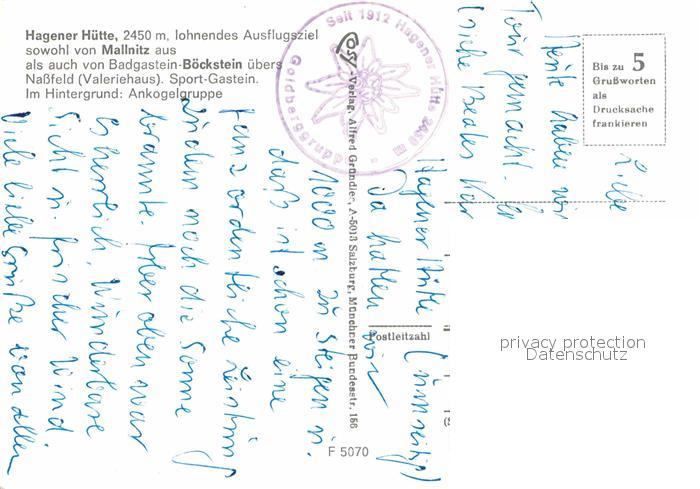 Hagener Hütte, 2450 m, lohnendes Ausflugsziel
sowohl von Mallnitz aus
als auch von Badgastein-Böckstein übers
Naßfeld (Valeriehaus). Sport-Gastein.
Im Hintergrund: Ankogelgruppe
Seit 1912 Hagener Hütte 2450 m
Goldberggruppe
Cosy-Verlag, Alfred Gründler, A-5013 Salzburg, Münchner Bundesstr. 156
Bis zu 5
Grußworten
als
Drucksache
frankieren
Postleitzahl
F 5070
privacy protection
Datenschutz
Liebe
Heute haben wir
Tour gemacht.
Hagener Hütte (umseitig)
Da hatten wir
1000 m zu steigen u.
daß ist schon eine
ganz ordentliche Leistung
zudem noch die Sonne
brannte. Aber oben war
es herrlich, wunderbare
Sicht u. frischer Wind
Viele liebe Grüße von allen